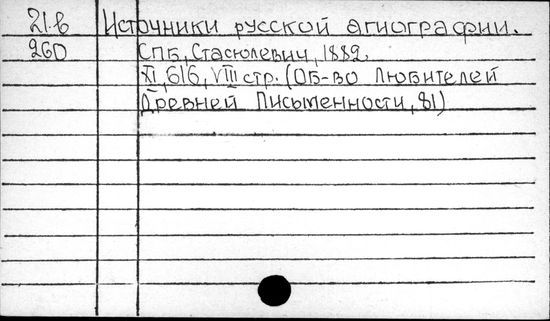 21.в Источники русской агиографии.
260 СПБ, Стасюлевич, 1882.
XI, 616, VIII стр. (Об-во Любителей
Древней Письменности, 81)